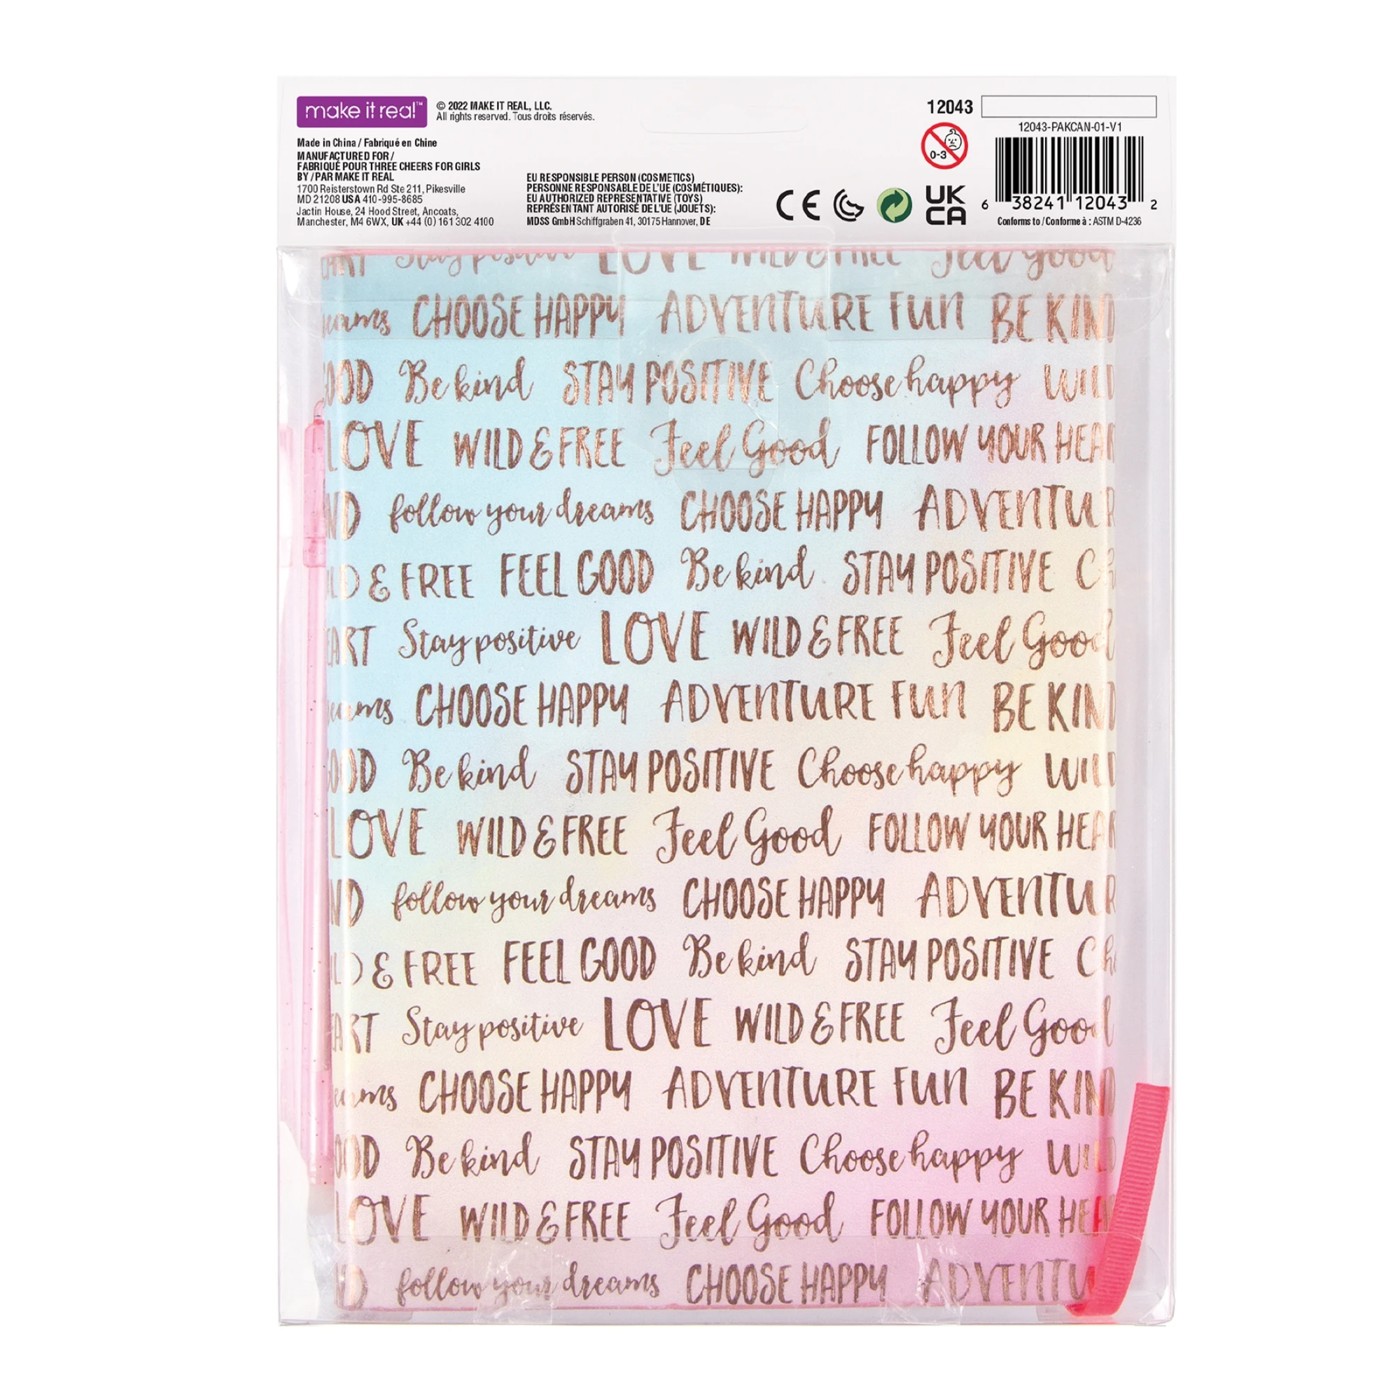 make it real™
© 2022 MAKE IT REAL, LLC.
All rights reserved. Tous droits réservés.
Made in China / Fabriqué en Chine
MANUFACTURED FOR /
FABRIQUÉ POUR THREE CHEERS FOR GIRLS
BY / PAR MAKE IT REAL
1700 Reisterstown Rd Ste 211, Pikesville
MD 21208 USA 410-995-8685
Jactin House, 24 Hood Street, Ancoats,
Manchester, M4 6WX, UK +44 (0) 161 302 4100
EU RESPONSIBLE PERSON (COSMETICS)
PERSONNE RESPONSABLE DE L'UE (COSMÉTIQUES):
EU AUTHORIZED REPRESENTATIVE (TOYS)
REPRÉSENTANT AUTORISÉ DE L'UE (JOUETS):
MDSS GmbH Schiffgraben 41, 30175 Hannover, DE
CE
UK
CA
0-3
12043
12043-PAKCAN-01-V1
6 38241 12043 2
Conforms to / Conforme à : ASTM D-4236
Stay positive LOVE WILD & FREE Feel Good
CHOOSE HAPPY ADVENTURE FUN BE KIND
OOD Be kind STAY POSITIVE Choose happy WILD
LOVE WILD & FREE Feel Good FOLLOW YOUR HEAR
ND follow your dreams CHOOSE HAPPY ADVENTUR
LD & FREE FEEL GOOD Be kind STAY POSITIVE Ch
EART Stay positive LOVE WILD & FREE Feel Good
eams CHOOSE HAPPY ADVENTURE FUN BE KIND
OOD Be kind STAY POSITIVE Choose happy WILD
LOVE WILD & FREE Feel Good FOLLOW YOUR HEAR
ND follow your dreams CHOOSE HAPPY ADVENTUR
LD & FREE FEEL GOOD Be kind STAY POSITIVE Ch
EART Stay positive LOVE WILD & FREE Feel Good
eams CHOOSE HAPPY ADVENTURE FUN BE KIND
OOD Be kind STAY POSITIVE Choose happy WILD
LOVE WILD & FREE Feel Good FOLLOW YOUR HEAR
ND follow your dreams CHOOSE HAPPY ADVENTU